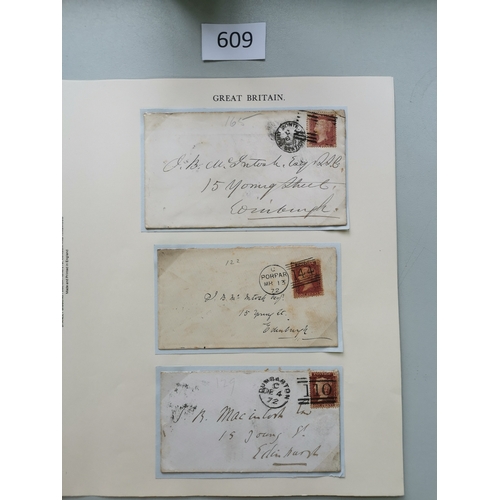 609
GREAT BRITAIN.
165
J. B. McIntosh, Esq
15 Young Street,
Edinburgh.
122
C
PORFAR
MR 13
72
44
J. B. McIntosh Esq
15 Young St
Edinburgh
DUMBARTON
C
DE 4
72
110
J. B. Macintosh
15 Young St
Edinburgh